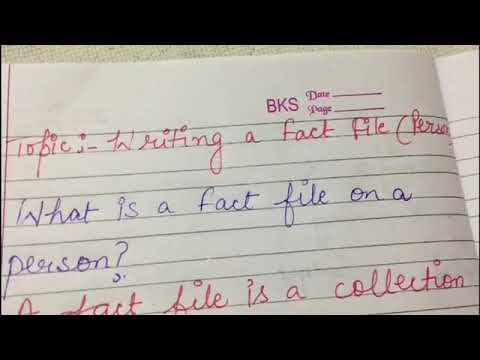 BKS Date
Page
Topic:- Writing a fact file (Person
What is a fact file on a
person?
A fact file is a collection